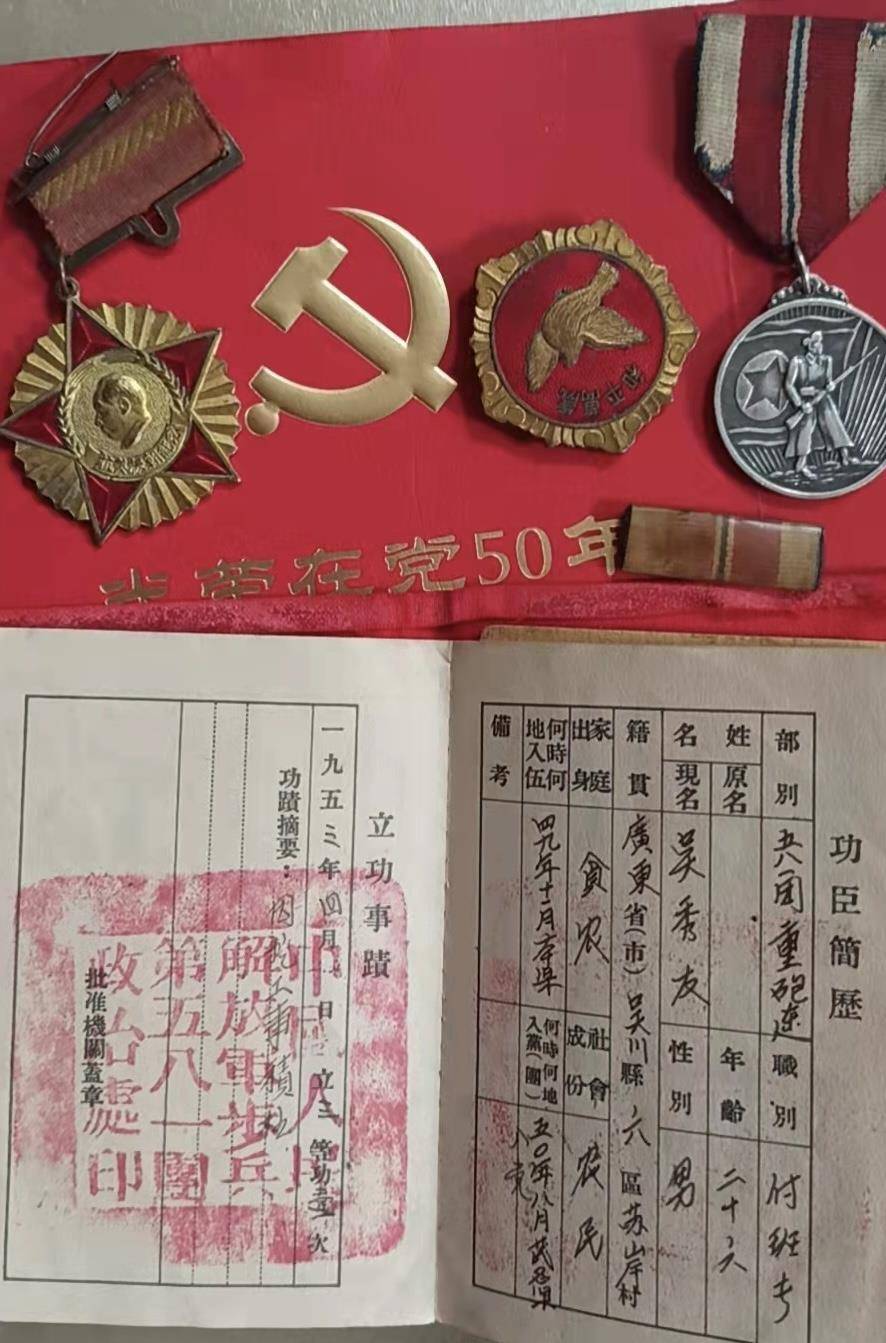 光荣在党50年
和平萬歲
功臣簡歷
部別 兵团重砲連 職別 付班长
姓名 原名
現名 吳秀友 年齡 二十六
性別 男
籍貫 廣東省(市)吴川縣六區苏岸村
家庭出身 貪农 社會成份 农民
何時何地入伍 四九年十二月本県
何時何地入黨(團) 五〇年八月
備考
立功事蹟
一九五三年四月 日 立三等功壹次
功蹟摘要：
批准機關蓋章
中國人民
解放軍步兵
第五八一團
政治處印